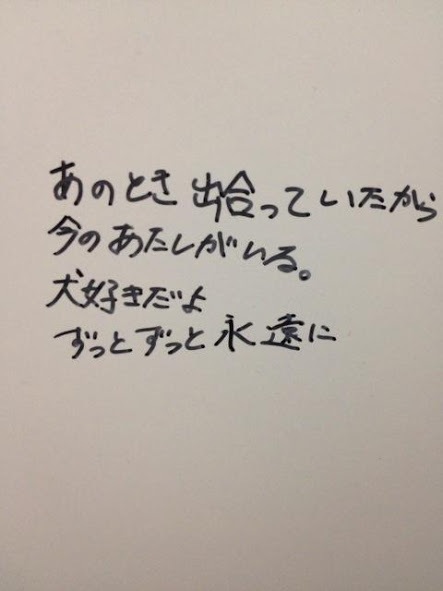 あのとき出合っていたから
今のあたしがいる。
犬好きだよ
ずっとずっと永遠に